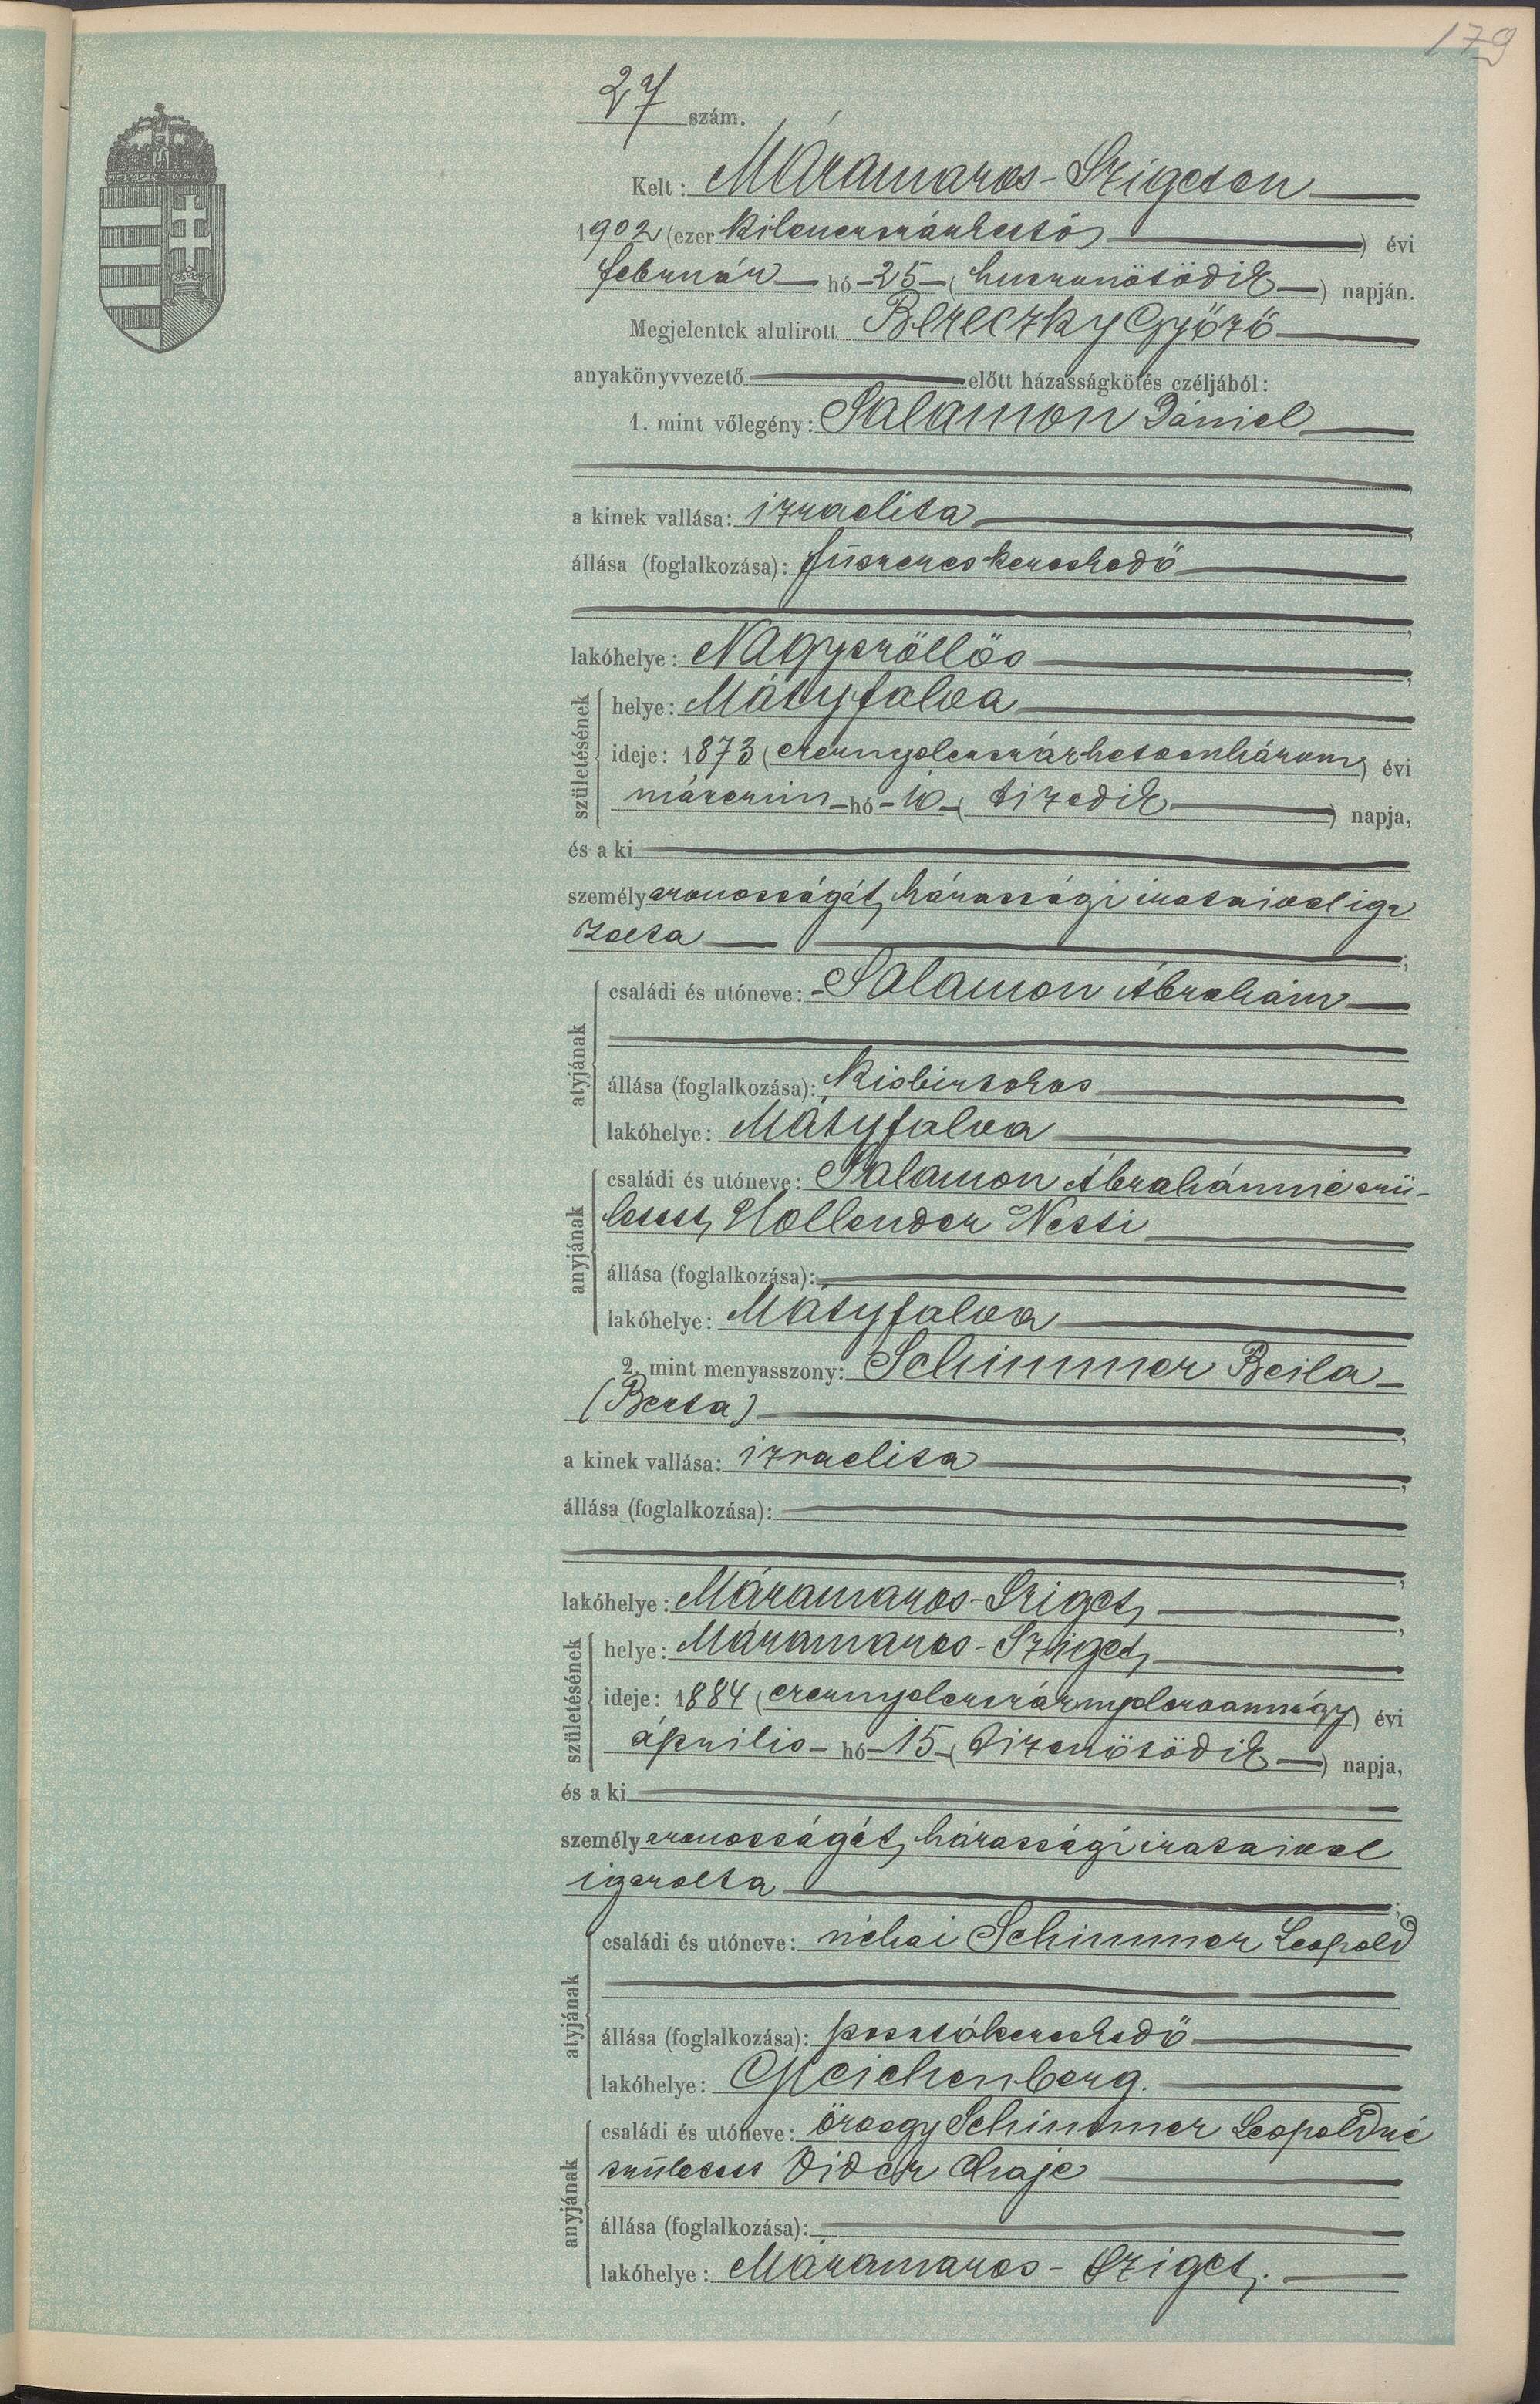 179
27 szám.
Kelt: Máramaros-Szigeten
1902 (ezer kilenczszázkettő) évi
február hó 25 (huszonötödik) napján.
Megjelentek alulirott Bereczky Győző
anyakönyvvezető előtt házasságkötés czéljából:
1. mint vőlegény: Salamon Dániel
a kinek vallása: izraelita
állása (foglalkozása): fűszereskereskedő
lakóhelye: Nagyszőllős
születésének
helye: Mátyfalva
ideje: 1873 (ezernyolczszázhetvenhárom) évi
márczius hó 10 (tizedik) napja,
és a ki
személyazonosságát házassági irataival iga
zolta
atyjának
családi és utóneve: Salamon Ábrahám
állása (foglalkozása): kisbirtokos
lakóhelye: Mátyfalva
anyjának
családi és utóneve: Salamon Ábrahámné szü-
letett Hollender Netti
állása (foglalkozása):
lakóhelye: Mátyfalva
2. mint menyasszony: Schimmer Beila
(Berta)
a kinek vallása: izraelita
állása (foglalkozása):
lakóhelye: Máramaros-Sziget
születésének
helye: Máramaros-Sziget
ideje: 1884 (ezernyolczszáznyolczvannégy) évi
április hó 15 (tizenötödik) napja,
és a ki
személyazonosságát házassági irataival
igazolta
atyjának
családi és utóneve: néhai Schimmer Leopold
állása (foglalkozása): posztókereskedő
lakóhelye: Gleichenberg.
anyjának
családi és utóneve: özvegy Schimmer Leopoldné
született Vider Chaje
állása (foglalkozása):
lakóhelye: Máramaros-Sziget.